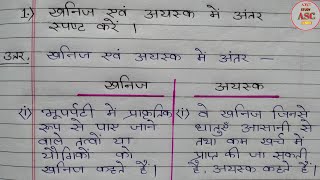 1.) खनिज एवं अयस्क में अंतर
स्पष्ट करें ।
उत्तर. खनिज एवं अयस्क में अंतर —
खनिज
अयस्क
(i) भूपर्पटी में प्राकृतिक
रूप से पाए जाने
वाले तत्वों या
यौगिकों को
खनिज कहते हैं।
(i) वे खनिज जिनसे
धातुएँ आसानी से
तथा कम खर्च में
प्राप्त की जा सकती
है, अयस्क कहते हैं।
ASC